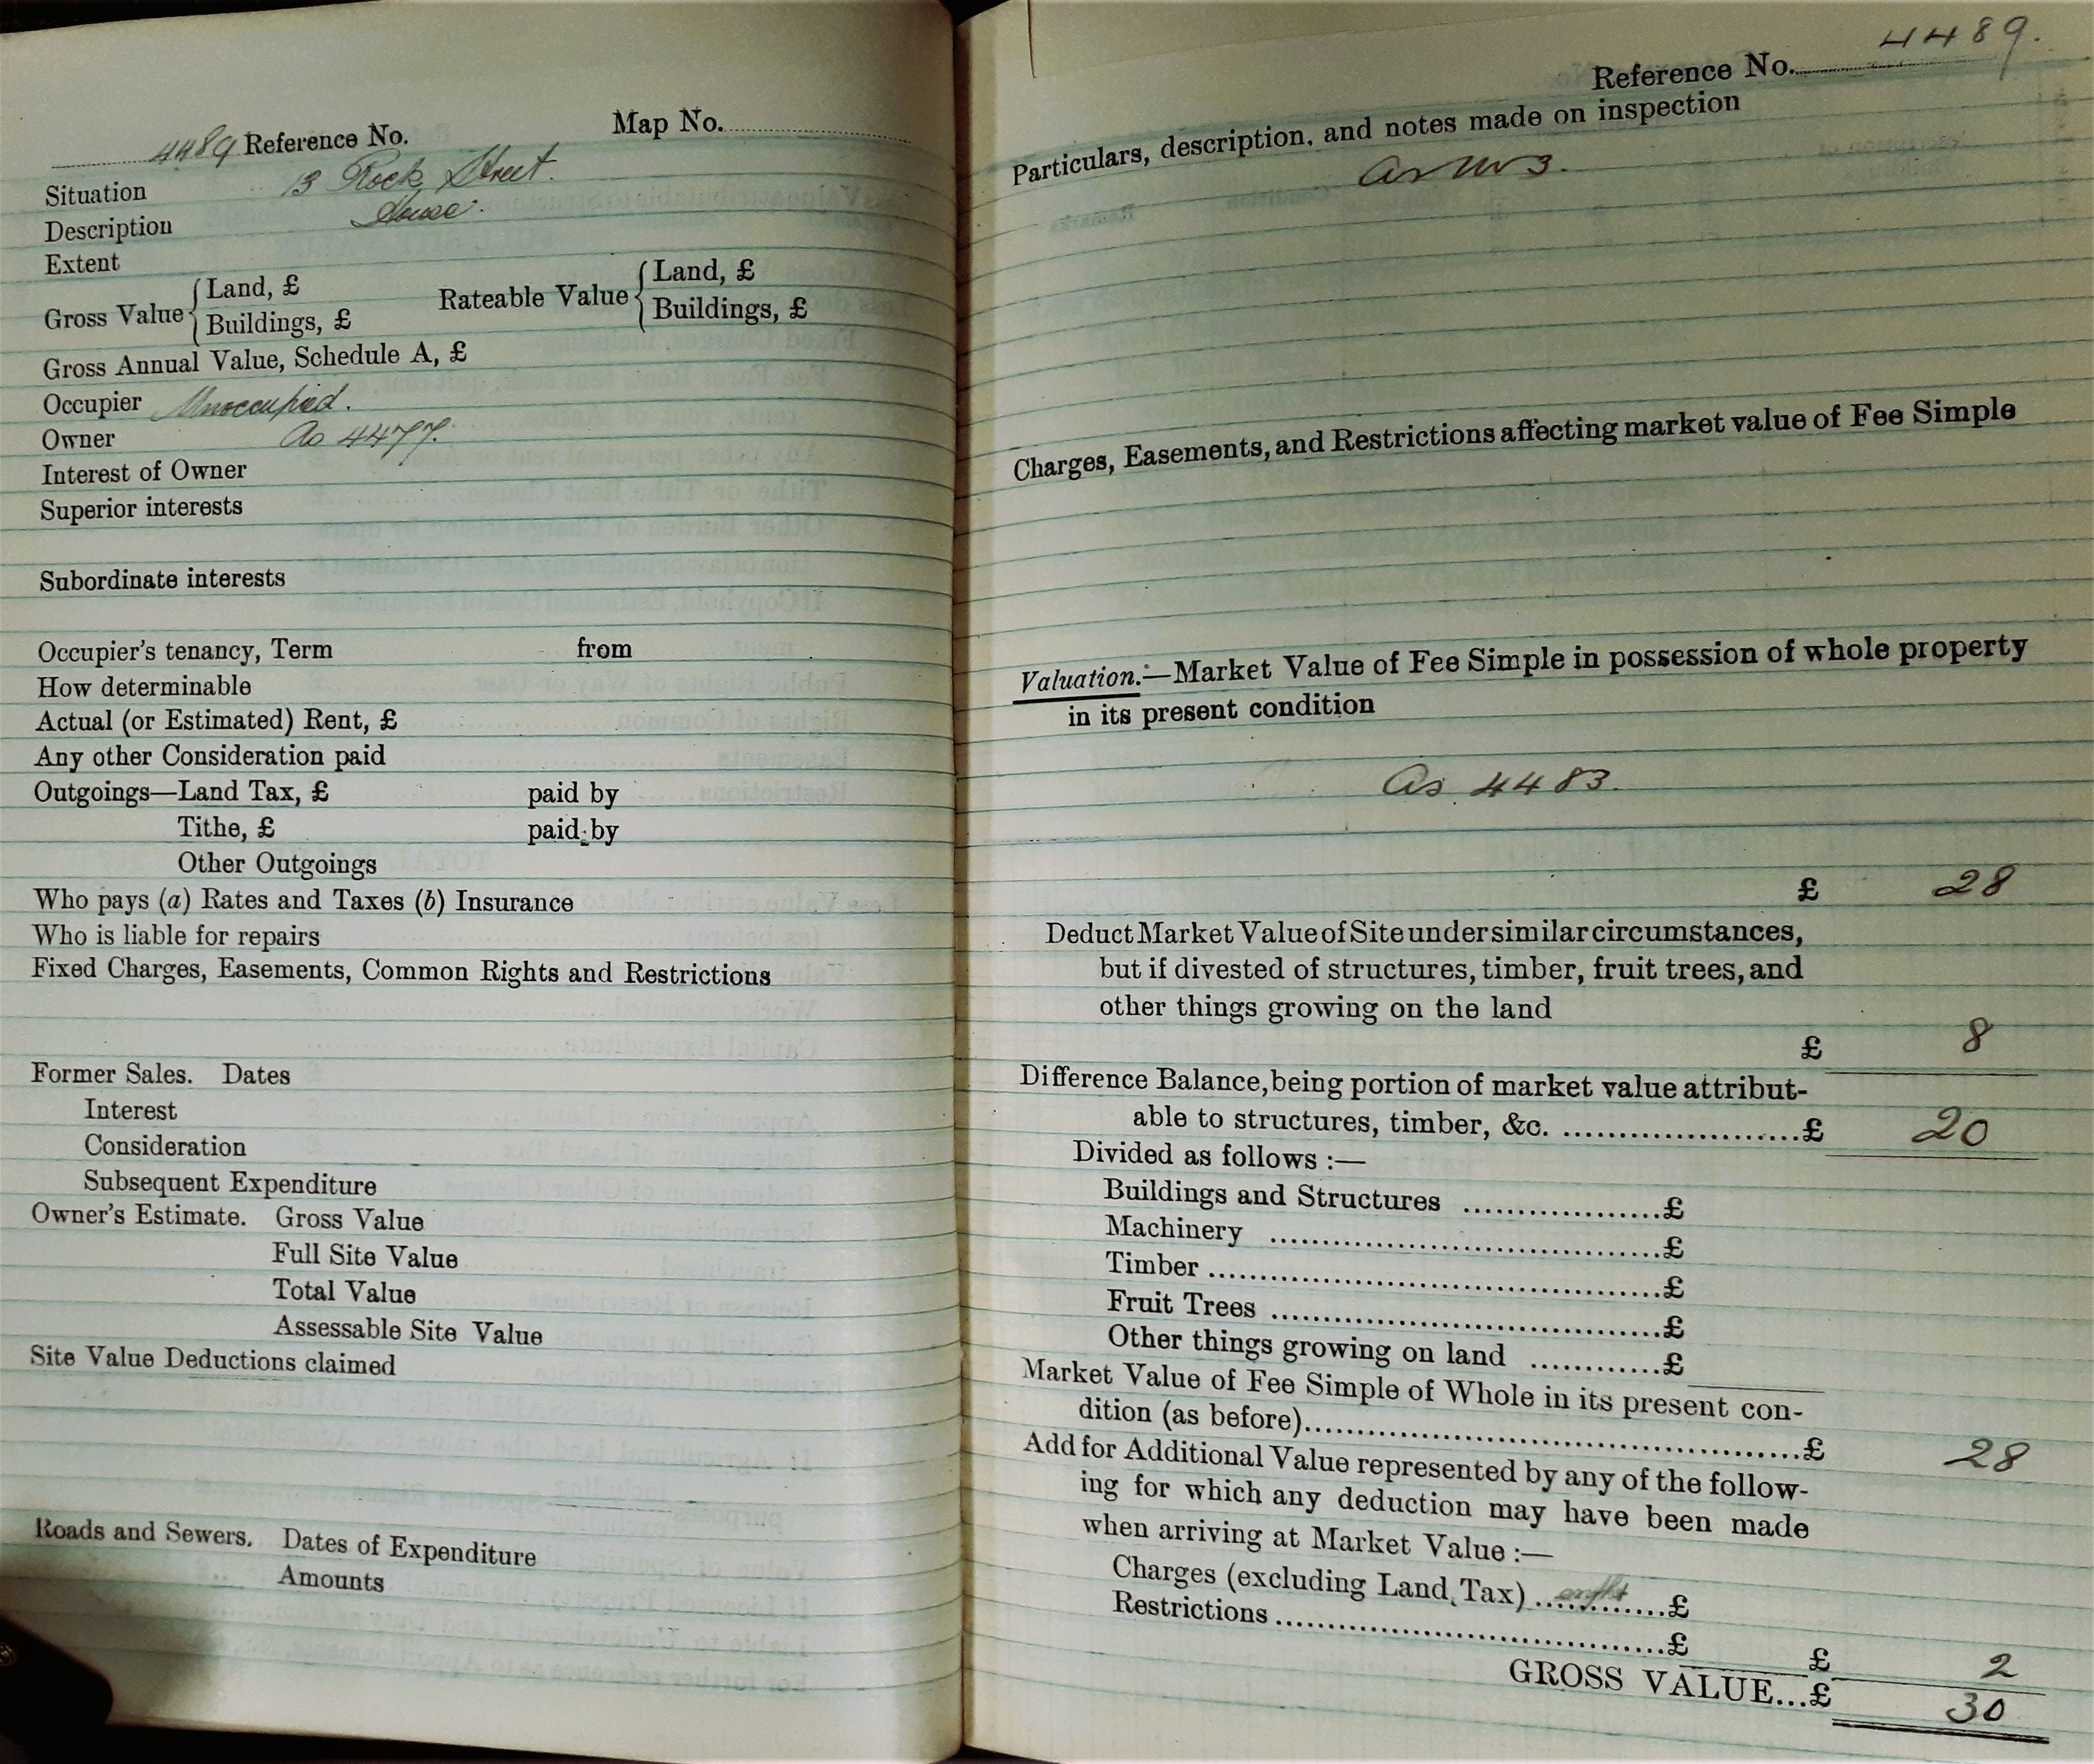 4489 Reference No. Map No.
Situation 13 Rock Street.
Description House.
Extent
Gross Value { Land, £ Rateable Value { Land, £
Buildings, £ Buildings, £
Gross Annual Value, Schedule A, £
Occupier Unoccupied.
Owner As 4477.
Interest of Owner
Superior interests
Subordinate interests
Occupier's tenancy, Term from
How determinable
Actual (or Estimated) Rent, £
Any other Consideration paid
Outgoings—Land Tax, £ paid by
Tithe, £ paid by
Other Outgoings
Who pays (a) Rates and Taxes (b) Insurance
Who is liable for repairs
Fixed Charges, Easements, Common Rights and Restrictions
Former Sales. Dates
Interest
Consideration
Subsequent Expenditure
Owner's Estimate. Gross Value
Full Site Value
Total Value
Assessable Site Value
Site Value Deductions claimed
Roads and Sewers. Dates of Expenditure
Amounts
Reference No. 4489.
Particulars, description, and notes made on inspection
As 3.
Charges, Easements, and Restrictions affecting market value of Fee Simple
Valuation.—Market Value of Fee Simple in possession of whole property
in its present condition
As 4483.
£ 28
Deduct Market Value of Site under similar circumstances,
but if divested of structures, timber, fruit trees, and
other things growing on the land
£ 8
Difference Balance, being portion of market value attribut-
able to structures, timber, &c. ........................£ 20
Divided as follows :—
Buildings and Structures ....................£
Machinery ........................................£
Timber ..............................................£
Fruit Trees ........................................£
Other things growing on land ............£
Market Value of Fee Simple of Whole in its present con-
dition (as before)......................................................£ 28
Add for Additional Value represented by any of the follow-
ing for which any deduction may have been made
when arriving at Market Value :—
Charges (excluding Land Tax) ..............£
Restrictions ..........................................£ £ 2
GROSS VALUE...£ 30